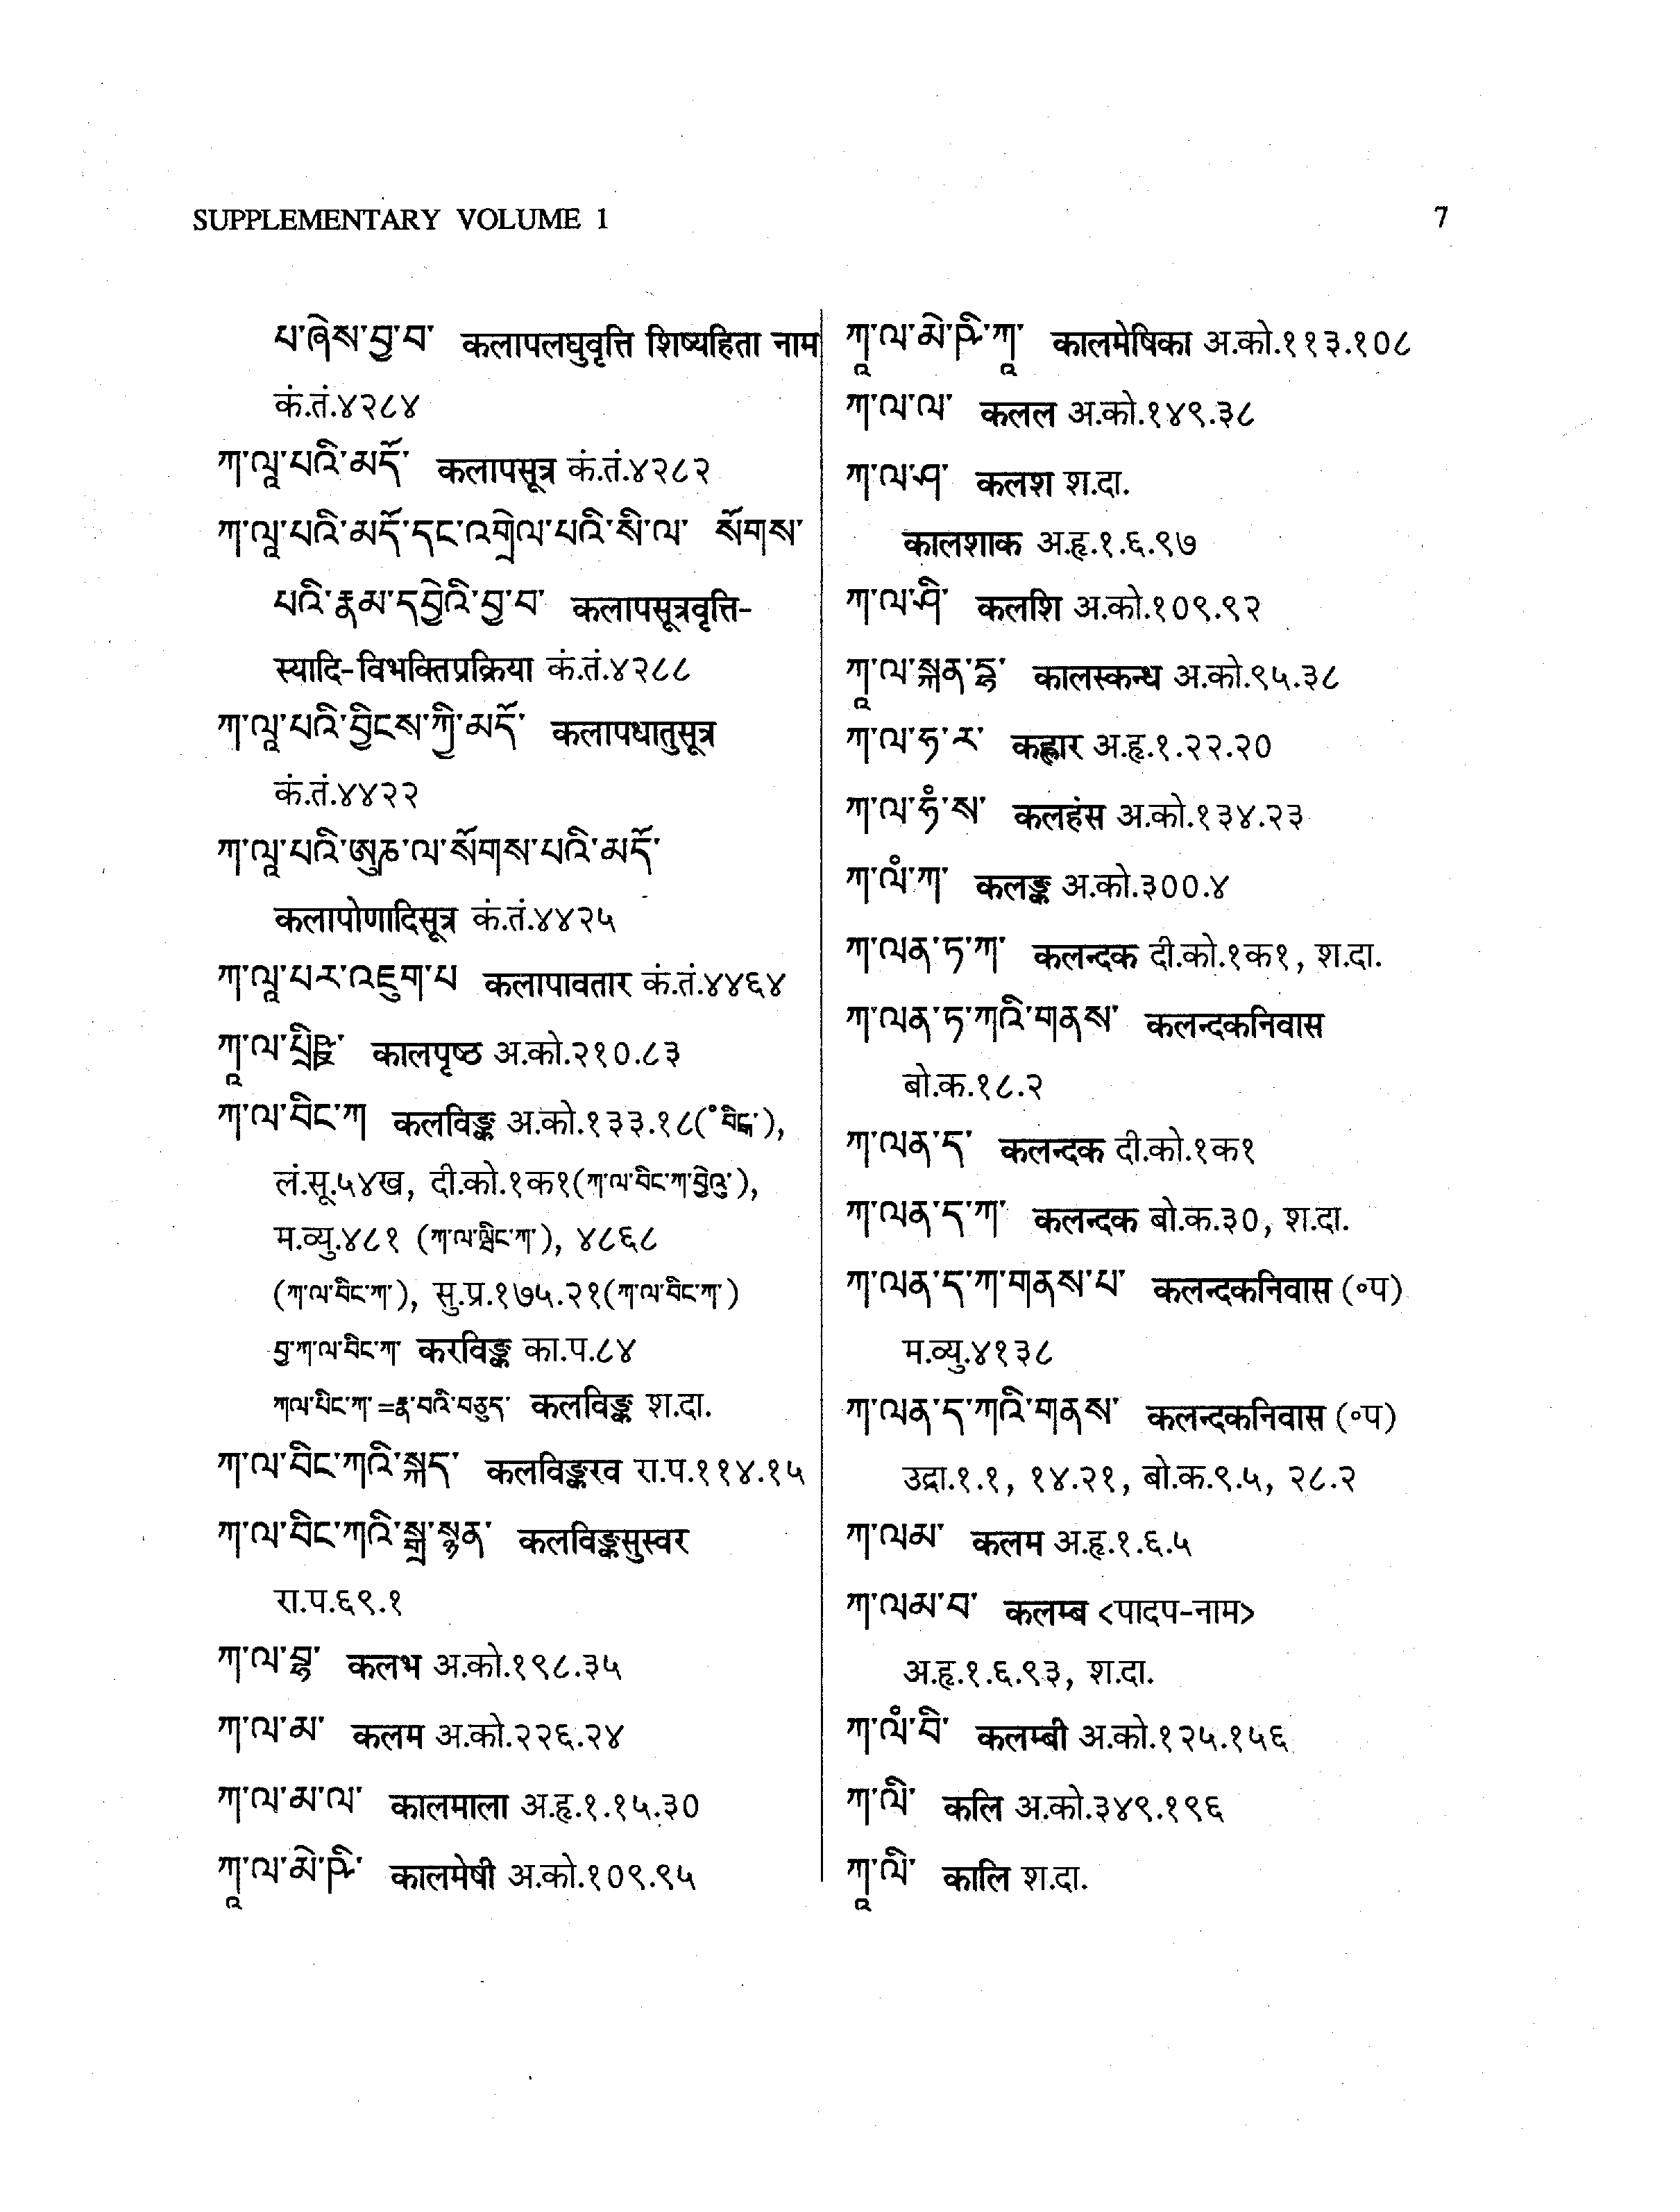 SUPPLEMENTARY VOLUME 1
7
པ་ཞེས་བྱ་བ་ कलापलघुवृत्ति शिष्यहिता नाम
कं.तं.४२८४
ཀ་ལཱ་པའི་མདོ་ कलापसूत्र कं.तं.४२८२
ཀ་ལཱ་པའི་མདོ་དང་འགྲེལ་པའི་སི་ལ་ སོགས་
པའི་རྣམ་དབྱེའི་བྱ་བ་ कलापसूत्रवृत्ति-
स्यादि-विभक्तिप्रक्रिया कं.तं.४२८८
ཀ་ལཱ་པའི་བྱིངས་ཀྱི་མདོ་ कलापधातुसूत्र
कं.तं.४४२२
ཀ་ལཱ་པའི་ཨུཎ་ལ་སོགས་པའི་མདོ་
कलापोणादिसूत्र कं.तं.४४२५
ཀ་ལཱ་པར་འཇུག་པ कलापावतार कं.तं.४४६४
ཀཱ་ལ་ कालपृष्ठ अ.को.२१०.८३
ཀ་ལ་བིང་ཀ कलविङ्क अ.को.१३३.१८(°བིངྐ་),
लं.सू.५४ख, दी.को.१क१(ཀ་ལ་བིང་ཀ་བྱེའུ་),
म.व्यु.४८१ (), ४८६८
(ཀ་ལ་བིང་ཀ་), सु.प्र.१७५.२१(ཀ་ལ་བིང་ཀ་)
བྱ་ཀ་ལ་བིང་ཀ करविङ्क का.प.८४
ཀལ་པིང་ཀ་=རྣ་བའི་བཅུད་ कलविङ्क श.दा.
ཀ་ལ་བིང་ཀའི་སྐད་ कलविङ्करव रा.प.११४.१५
ཀ་ལ་བིང་ཀའི་སྒྲ་སྙན་ कलविङ्कसुस्वर
रा.प.६९.१
ཀ་ལ་བྷ་ कलभ अ.को.१९८.३५
ཀ་ལ་མ་ कलम अ.को.२२६.२४
ཀ་ལ་མ་ལ་ कालमाला अ.हृ.१.१५.३०
ཀཱ་ལ་མེ་ཥི་ कालमेषी अ.को.१०९.९५
ཀཱ་ལ་མེ་ཥི་ཀཱ་ कालमेषिका अ.को.११३.१०८
ཀ་ལ་ལ་ कलल अ.को.१४९.३८
ཀ་ལ་ཤ་ कलश श.दा.
कालशाक अ.हृ.१.६.९७
ཀ་ལ་ཤི་ कलशि अ.को.१०९.९२
ཀཱ་ལ་སྐན་དྷ་ कालस्कन्ध अ.को.९५.३८
ཀ་ལ་ཧ་ར་ कह्लार अ.हृ.१.२२.२०
ཀ་ལ་ཧཾ་ས་ कलहंस अ.को.१३४.२३
ཀ་ལཾ་ཀ་ कलङ्क अ.को.३००.४
ཀ་ལན་ཏ་ཀ་ कलन्दक दी.को.१क१, श.दा.
ཀ་ལན་ཏ་ཀའི་གནས་ कलन्दकनिवास
बो.क.१८.२
ཀ་ལན་ད་ कलन्दक दी.को.१क१
ཀ་ལན་ད་ཀ་ कलन्दक बो.क.३०, श.दा.
ཀ་ལན་ད་ཀ་གནས་པ་ कलन्दकनिवास (॰प)
म.व्यु.४१३८
ཀ་ལན་ད་ཀའི་གནས་ कलन्दकनिवास (॰प)
उद्रा.१.१, १४.२१, बो.क.९.५, २८.२
ཀ་ལམ་ कलम अ.हृ.१.६.५
ཀ་ལམ་བ་ कलम्ब <पादप-नाम>
अ.हृ.१.६.९३, श.दा.
ཀ་ལཾ་བི་ कलम्बी अ.को.१२५.१५६
ཀ་ལི་ कलि अ.को.३४९.१९६
ཀཱ་ལི་ कालि श.दा.